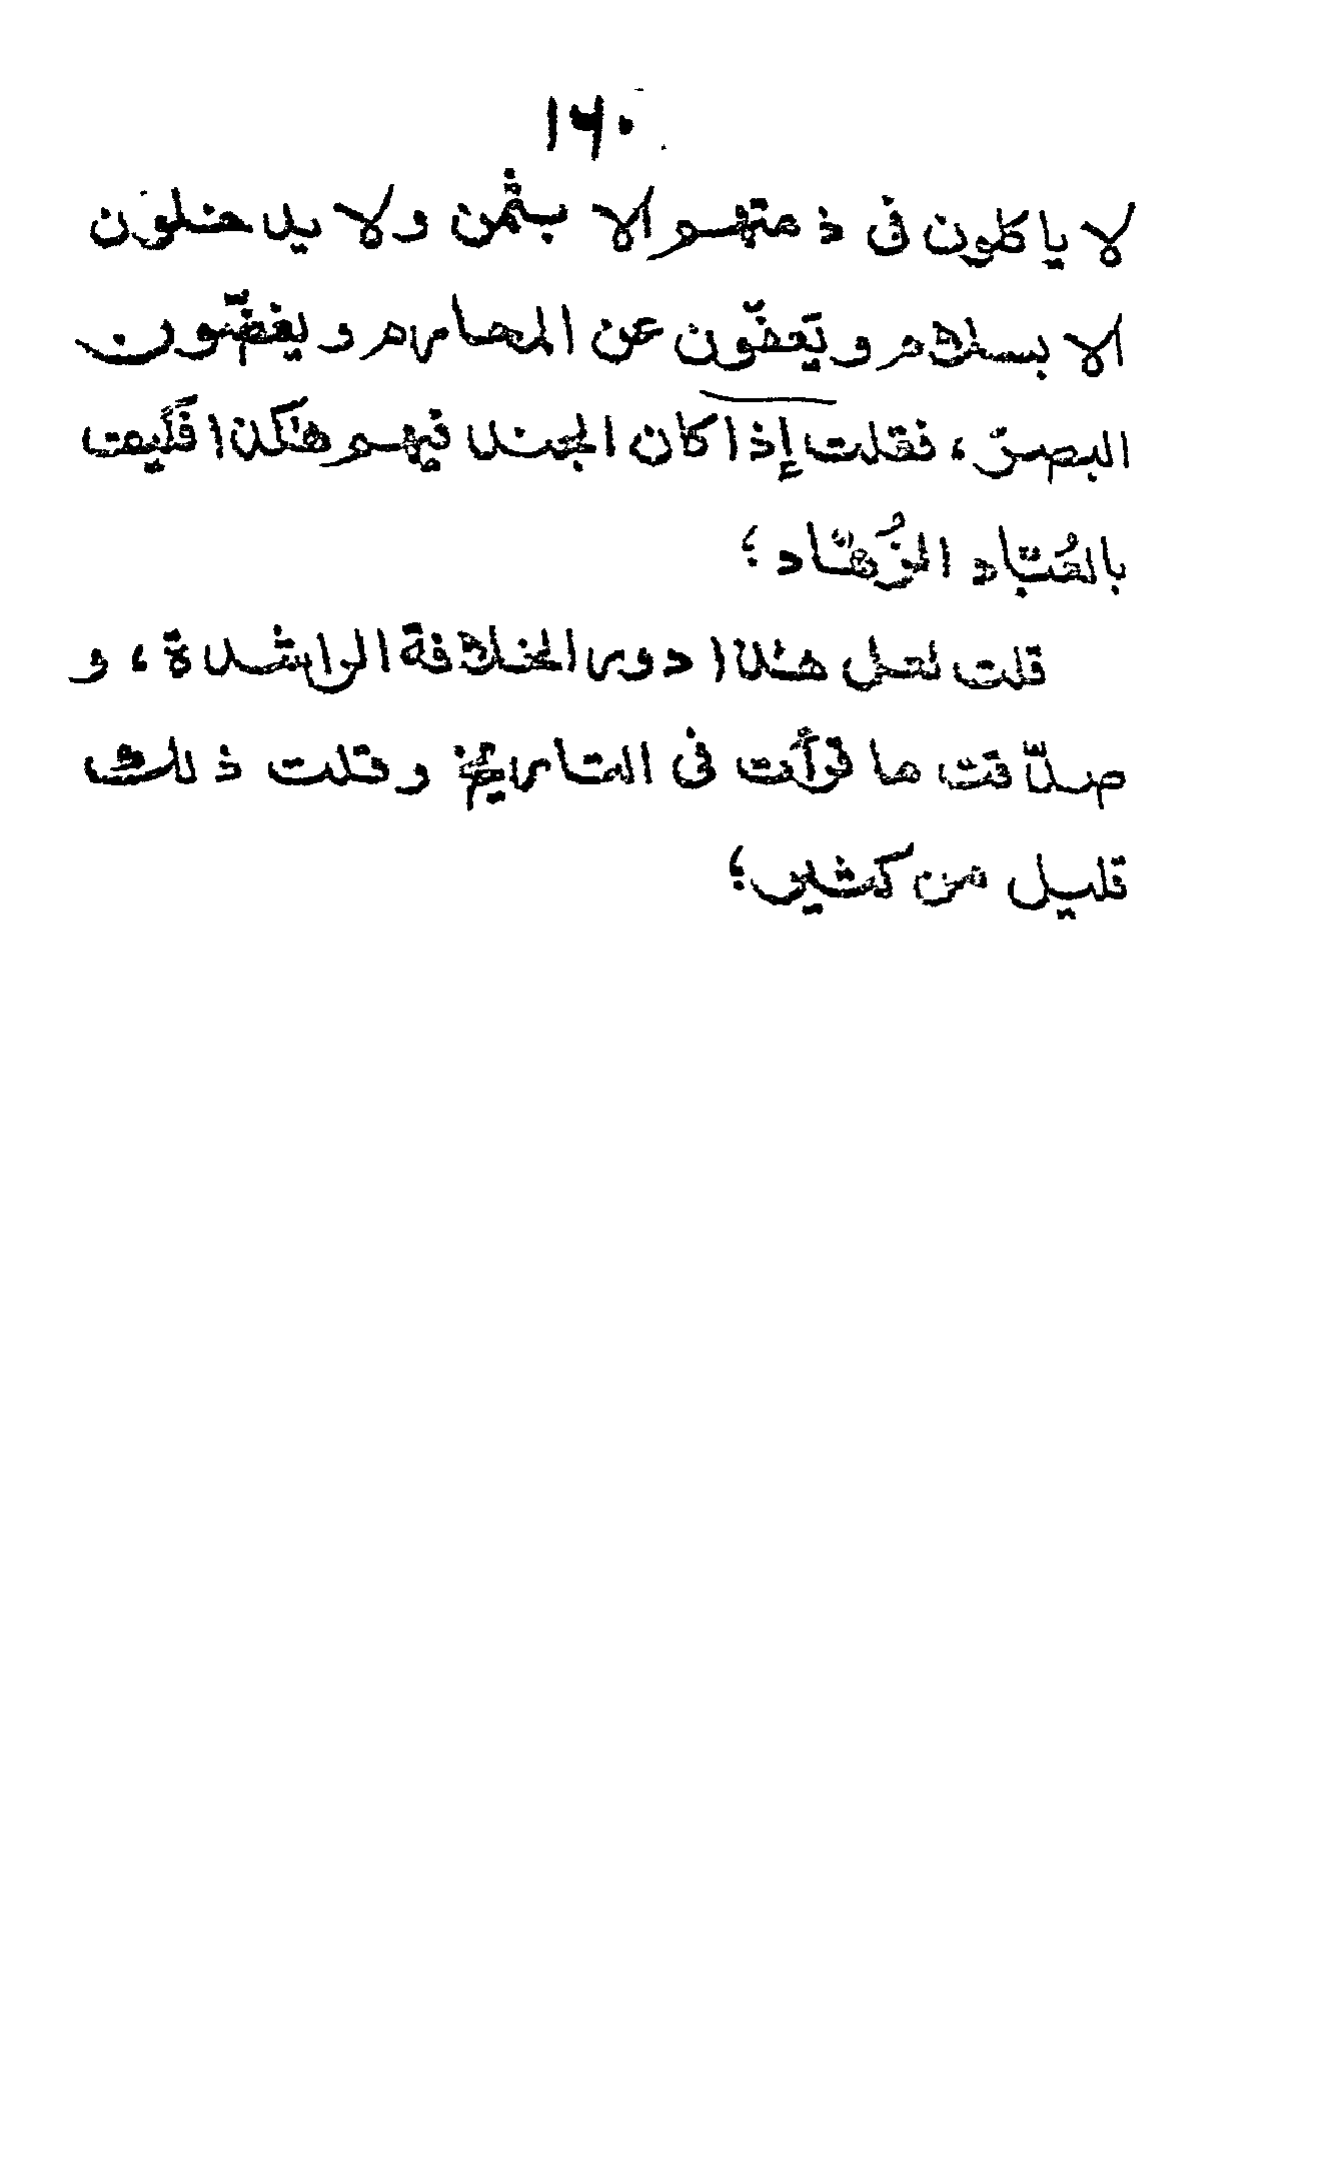 ١٦٠
لا ياكلون فى ذمتهم الا بثمن ولا يدخلون
الا بسلام ويَعفّون عن المحارم ويغضّون
البصر، فقلت إذا كان الجند فيهم هٰكذا فَكَيف
بالعُبّاد الزُهّاد؛
قلت لعل هٰذا دور الخلافة الراشدة، و
صدّقت ما قرأت فى التاريخ وقلت ذلك
قليل من كثير؛